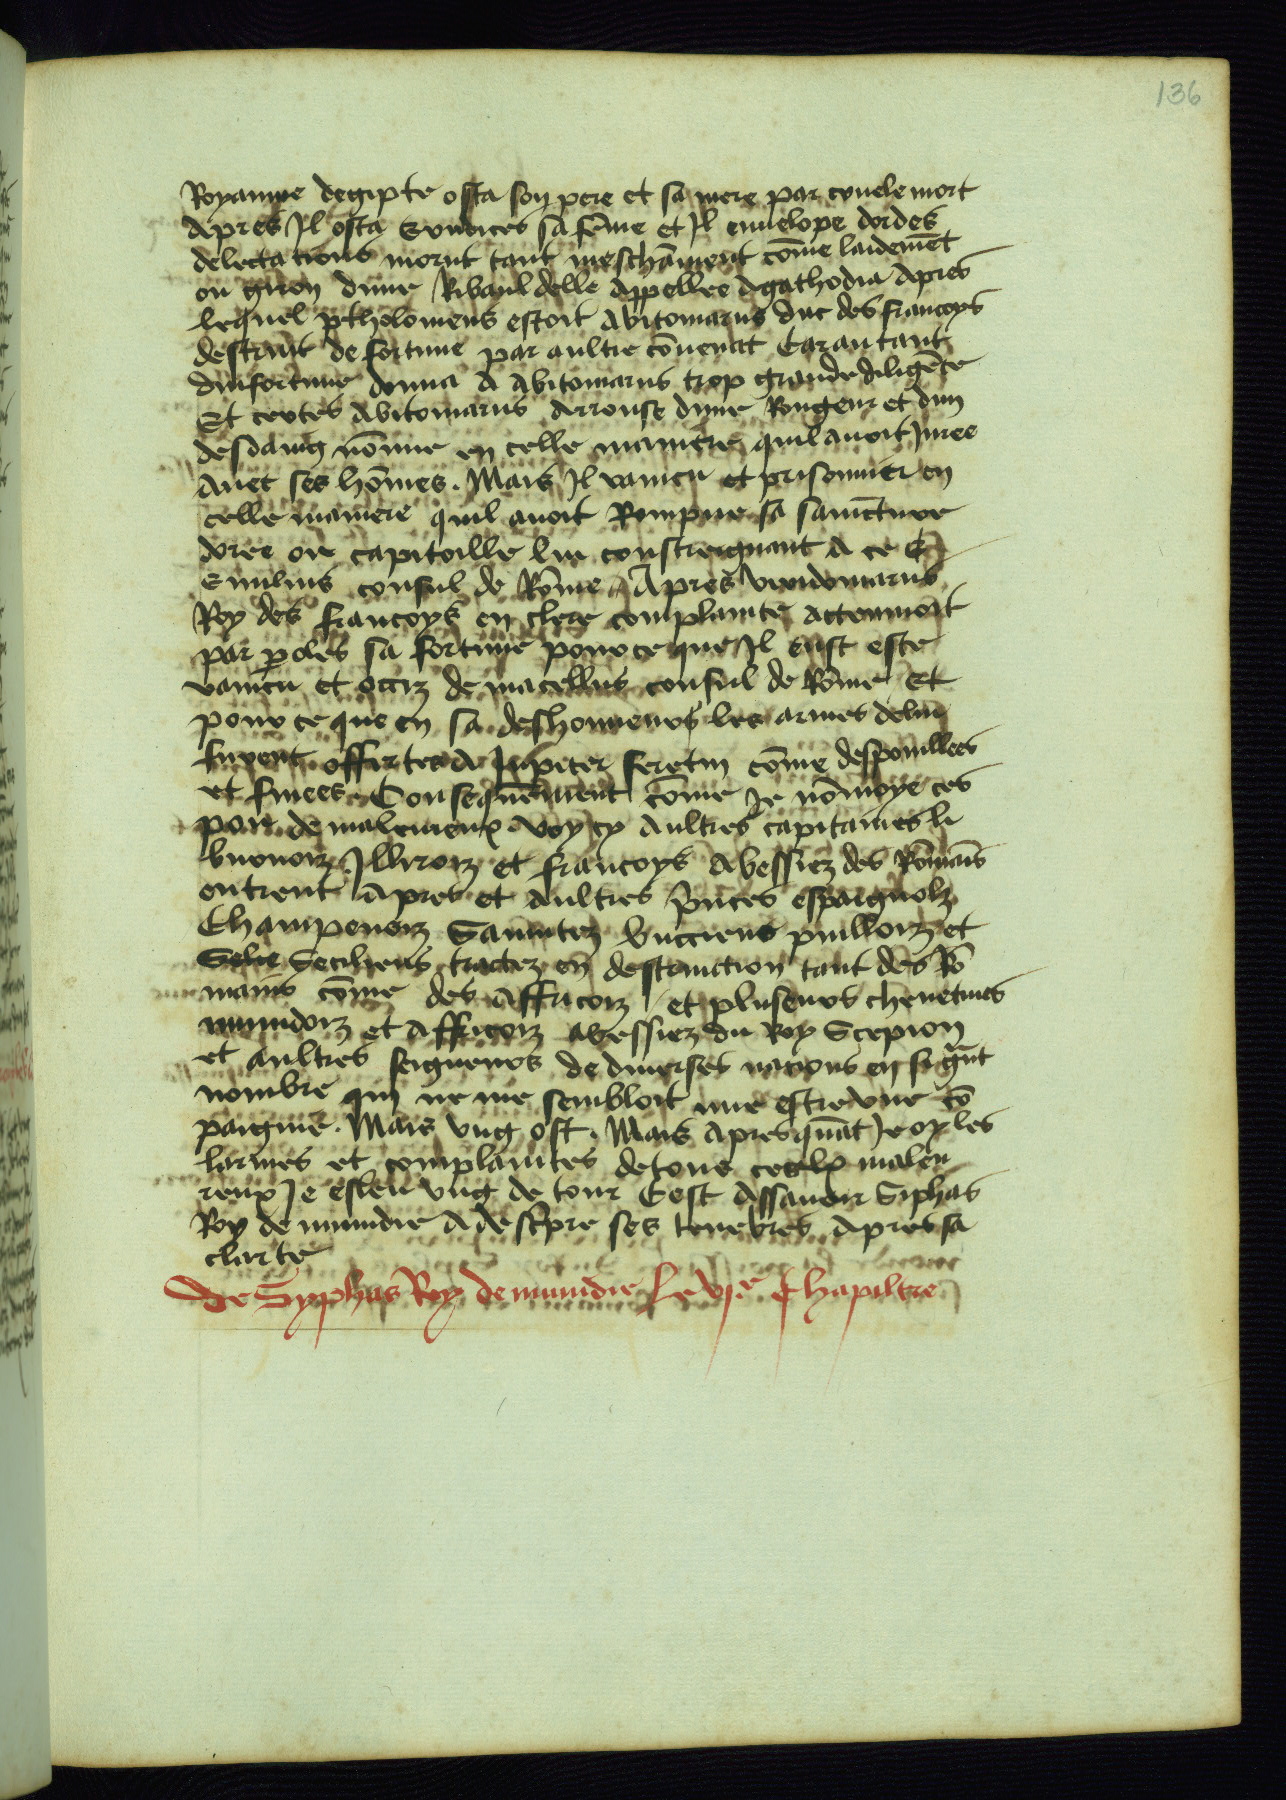 136
Royaume degipte osta son pere et sa mere par cruele mort
Apres Il osta Eurdices sa fēme et Il enuelope dordes
delectations morut tant meschāment cōme laidemēt
ou giron dune Ribauldelle Appellee Agathodia Apres
lequel ptholomeus estoit Abitomarus duc des francoys
destruit de fortune par aultre cōuenāt Car autant
dinfortune donna A Abitomarus trop grande diligēce
Et certes Abitomarus Arrouse dune Rougeur et dun
desdaing nōme en celle maniere quil auoit Juree
Auec ses hōmes. Mais Il vaincu et prisonnier en
celle maniere quil auoit Rompue sa sainctuere
doree ou capitoille luy constreignant A ce E
Emilius consul de Rōme Apres virdomarus
Roy des francoys en clere complainte Attennoit
par poles sa fortune pource que Il eust este
vaincu et occiz de macellus consul de Rōme Et
pource que en sa deshonneurs les armes deluy
furent offertes A Jupiter feretin cōme despouillees
et finees. Consequēment cōme Je nōmoye ces
pou de maleureux Voycy Aultres capitaines li
burnoiz Illiroiz et francoys Abessiez des Rōmais
entrent Apres et Aultres princes espaignolz
Champenoiz Samnitez bucciens puilloiz et
Selie Seciliens traictez en destruiction tant des Rō
mains cōme des Affricoiz et pluseurs cheuetaines
numidoiz et Affricoiz Abessiez du Roy Scepion
et aultres seigneurs de diuerses nacions en si grāt
nombre qui ne me sembloit mie estre vne cō
paignie. Mais vng ost. Mais Apres quāt Je oy les
larmes et complaintes de tous ces maleu
reux Je esleu vng de tour Cest Assauoir Siphas
Roy de numidie A descpre ses tenebres Apres sa
clarte
De Syphas Roy de numidie Le vje Chapiltre